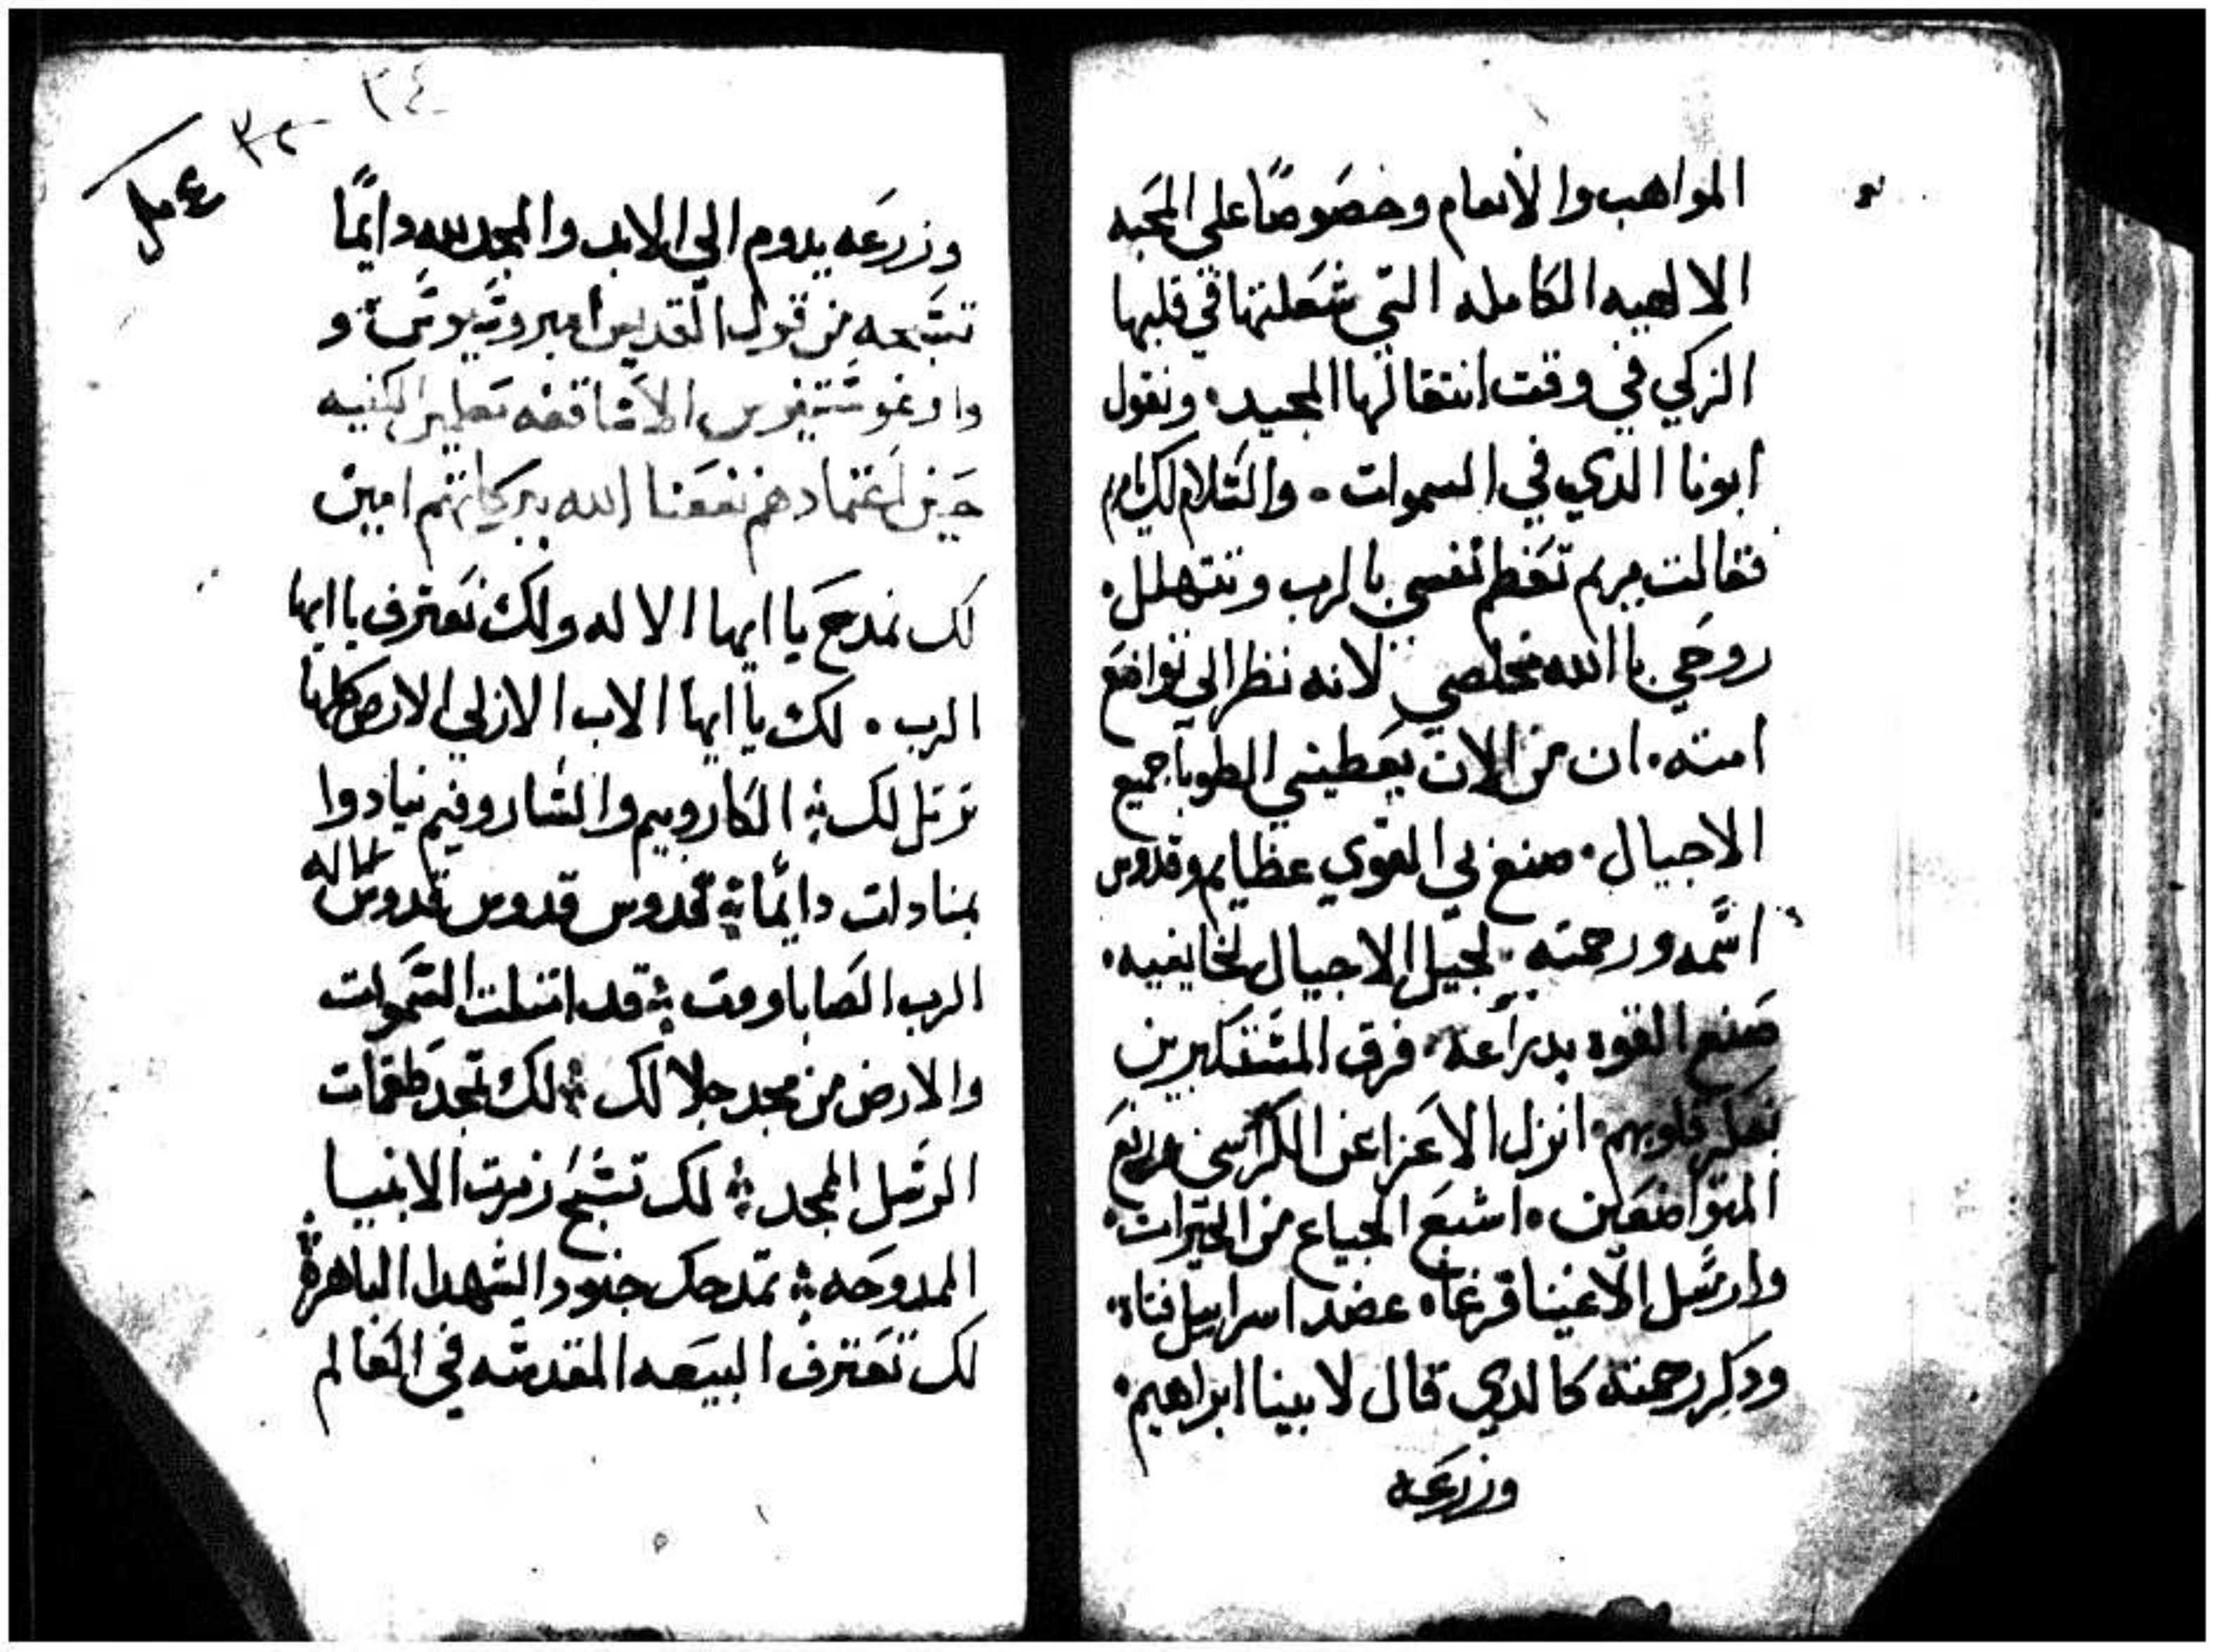 المواهب والانعام وخصوصًا علي المحبه
الالهيه الكامله التي شعلتها في قلبها
الزكي في وقت انتقالها المجيد. ونقول
ابونا الدي في السموات. والسلام لك يامريم
فقالت مريم تعظم نفسي بالرب وتتهلل.
روحي باالله مخلصي لانه نظر الي تواضع
امته. ان من الان يعطيني الطوبا جميع
الاجيال. صنع بي القوي عظايم وقدوس
اسمه ورحمته لجيل الاجيال لخايفيه.
صنع القوه بدراعه. فرق المتفكبرين
بفكر قلوبهم. انزل الاعزا عن الكراسي ورفع
المتواضعين. اشبع الجياع من الخيرات.
وارسل الاغنيا فرغا. عضد اسراييل فتاه.
ودكر رحمته كالدي قال لابينا ابراهيم.
وزرعه
٣٤
٣٢
وزرعه يدوم الي الابد والمجد لله دايمًا
تسبحه من قول القديس امبروسيوس و
واوغوستينوس الاساقفه معلمين الكنيسه
حين اعتمادهم نفعنا الله ببركاتهم امين
لك نمدح يا ايها الاله ولك نعترف يا ايها
الرب. لك يا ايها الاب الازلي الارض كلها
ترتل لك الكاروبيم والساروفيم نيادوا
بمنادات دايمًا قدوس قدوس قدوس
الرب الصاباووت قد امتلت السموات
والارض من مجد جلالك لك تمجد طغمات
الرسل المجد لك تسبح زمرت الانبيا
الممدوحه تمدحك جنود الشهدا الباهرة
لك تعترف البيعه المقدسه في العالم